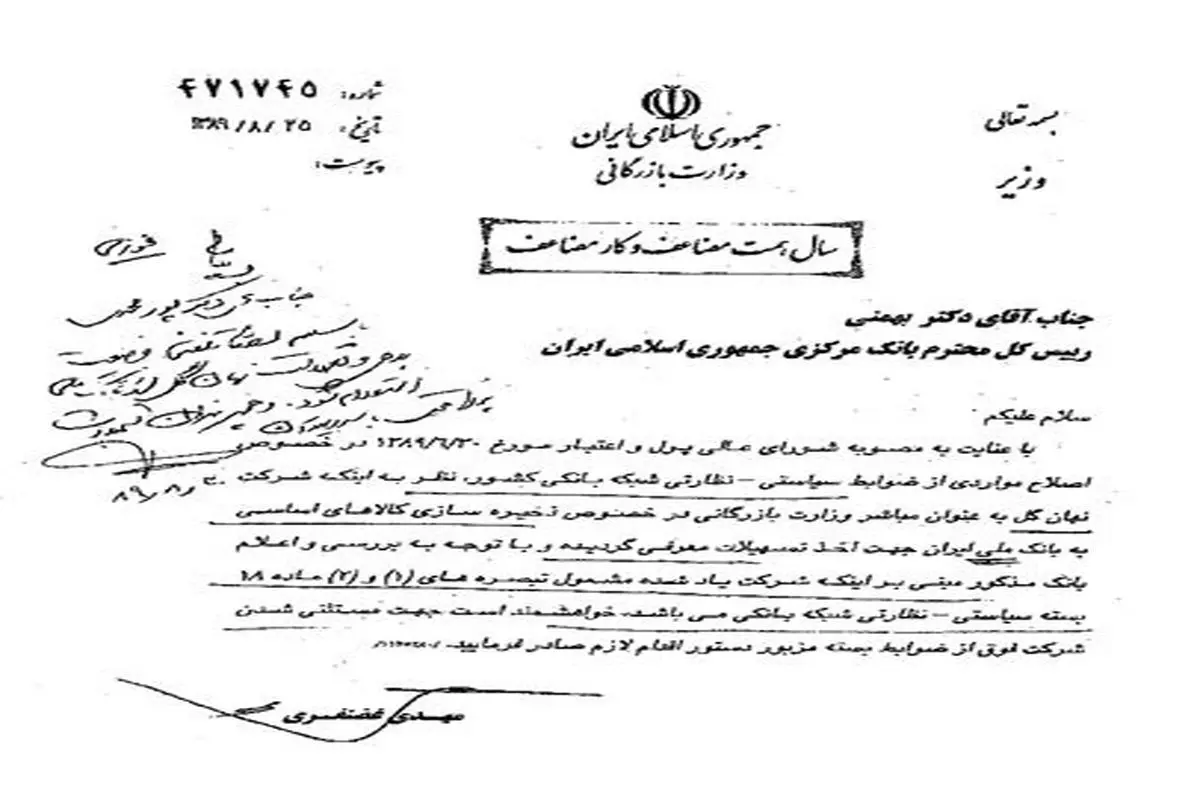 بسمه تعالی
وزیر
جمهوری اسلامی ایران
وزارت بازرگانی
شماره: ۴۷۱۷۴۵
تاریخ: ۱۳۸۹/۸/۲۵
پیوست:
سال همت مضاعف و کار مضاعف
فوری
جناب آقای دکتر پورمحمدی
۸۹/۸/۳۰
جناب آقای دکتر بهمنی
رییس کل محترم بانک مرکزی جمهوری اسلامی ایران
سلام علیکم
با عنایت به مصوبه شورای عالی پول و اعتبار مورخ ۱۳۸۹/۶/۳۰ در خصوص
اصلاح مواردی از ضوابط سیاستی – نظارتی شبکه بانکی کشور، نظر به اینکه شرکت
نهان گل به عنوان مباشر وزارت بازرگانی در خصوص ذخیره سازی کالاهای اساسی
به بانک ملی ایران جهت اخذ تسهیلات معرفی گردیده و با توجه به بررسی و اعلام
بانک مذکور مبنی بر اینکه شرکت یاد شده مشمول تبصره های (۱) و (۲) ماده ۱۸
بسته سیاستی – نظارتی شبکه بانکی می باشد، خواهشمند است جهت مستثنی شدن
شرکت فوق از ضوابط بسته مزبور دستور اقدام لازم صادر فرمایید.
مهدی غضنفری